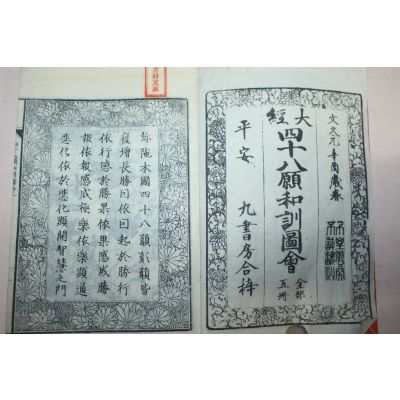 文久元辛酉歳春
大經
四十八願和訓圖會
全部
五冊
平安 九書房合梓
吉村文庫
弥陀本國四十八願願願皆
發增長勝因依因起於勝行
依行感於勝果依果感成勝
報依報感成極樂依樂顯通
悲化依於悲化顯開智慧之門